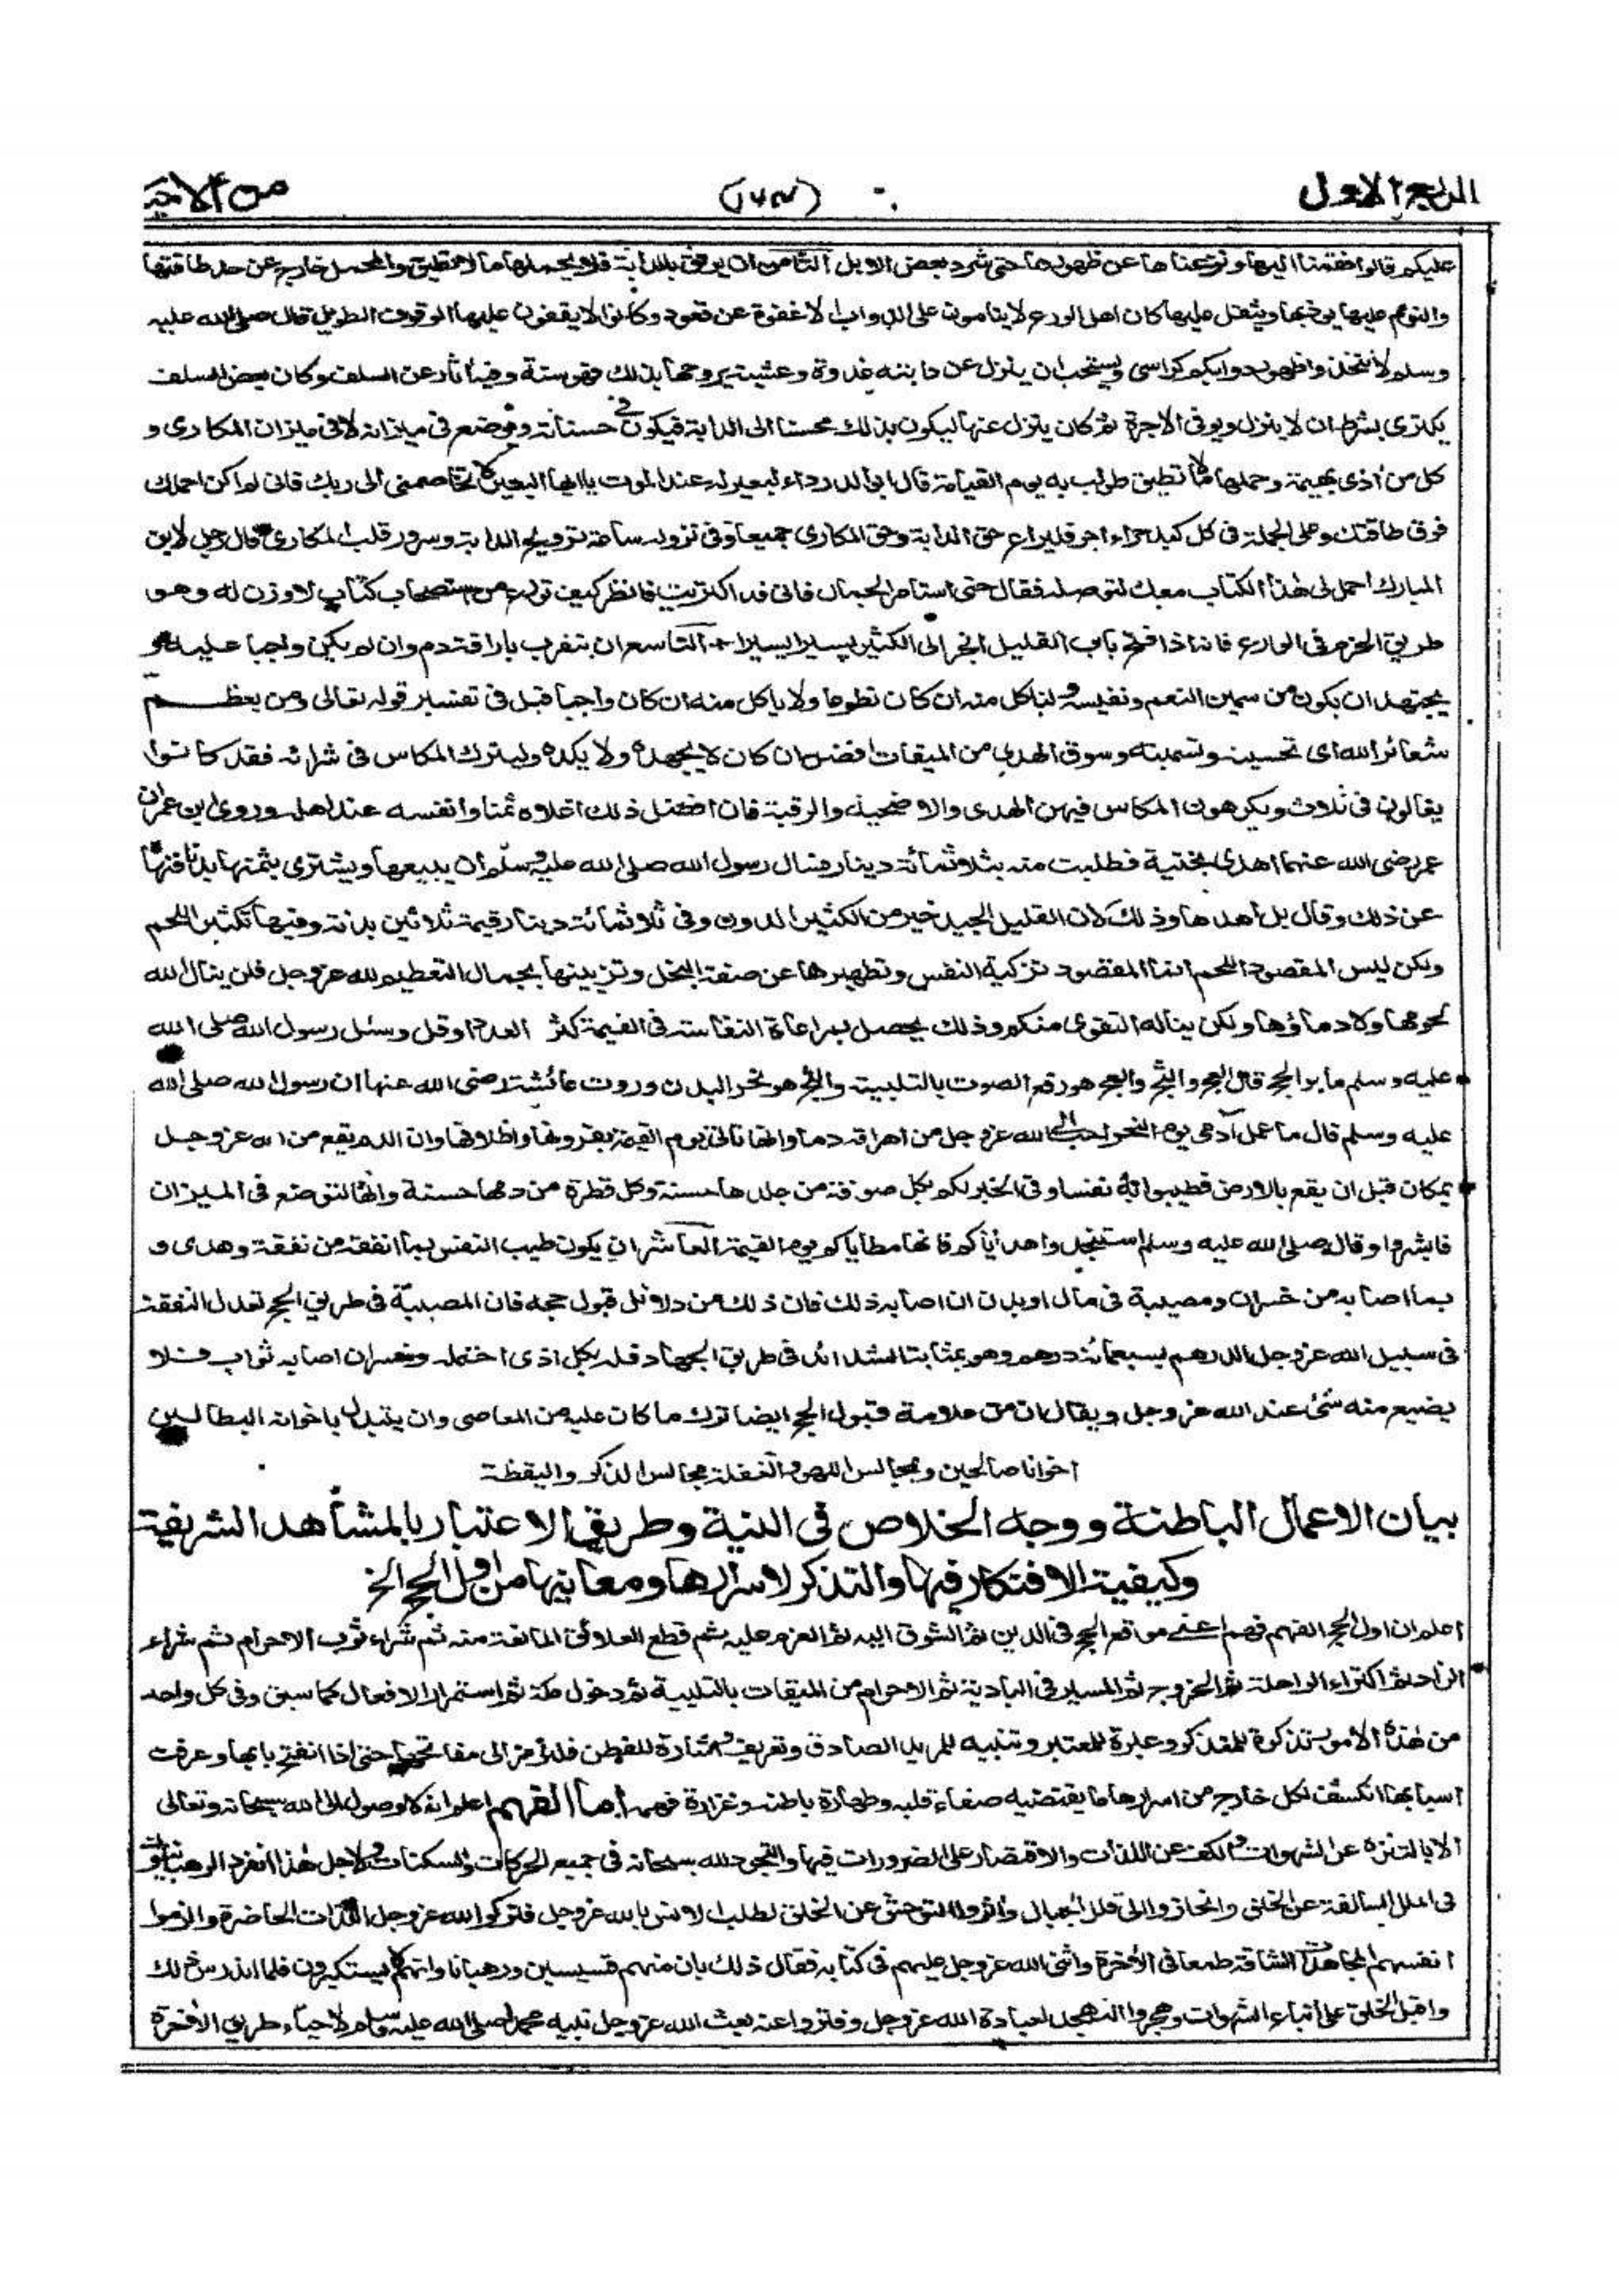 الربع الاول (١٦٣) من الاحياء
عليكم قالوا فقمنا اليها ونزعناها عن ظهورها حتى شرد بعض الابل الثامن ان يرفق بالدابة فلا يحملها ما لا تطيق والمحمل خارج عن حد طاقتها
والنوم عليها يؤذيها ويثقل عليها كان اهل الورع لا ينامون على الدواب الا غفوة عن قعود وكانوا لا يقفون عليها الوقوف الطويل قال صلى الله عليه
وسلم لا تتخذوا ظهور دوابكم كراسى ويستحب ان ينزل عن دابته غدوة وعشية يروحها بذلك فهو سنة وفيه آثار عن السلف وكان بعض السلف
يكترى بشرط ان لا ينزل ويوفى الاجرة ثم كان ينزل عنها ليكون بذلك محسنا الى الدابة فيكون فى حسناته ويوضع فى ميزانه لا فى ميزان المكارى و
كل من أذى بهيمة وحملها مالا تطيق طولب به يوم القيامة قال ابو الدرداء لبعير له عند الموت يا ايها البعير لا تخاصمنى الى ربك فانى لم اكن احملك
فوق طاقتك وعلى الجملة فى كل كبد حراء اجر فليراع حق الدابة وحق المكارى جميعا وفى نزوله ساعة ترويح الدابة وسرور قلب المكارى قال رجل لابن
المبارك احمل لى هذا الكتاب معك لتوصله فقال حتى استامر الجمال فانى قد اكتريت فانظر كيف تورع من استصحاب كتاب لا وزن له وهو
طريق الحزم فى الورع فانه اذا فتح باب القليل انجر الى الكثير يسيرا يسيرا التاسع ان يتقرب باراقة دم وان لم يكن واجبا عليه و
يجتهد ان يكون من سمين النعم ونفيسه وليأكل منه ان كان تطوعا ولا يأكل منه ان كان واجبا قيل فى تفسير قوله تعالى ومن يعظم
شعائر الله اى تحسينه وتسمينه وسوق الهدى من الميقات افضل ان كان لا يجهده ولا يكده وليترك المكاس فى شرائه فقد كانوا
يغالون فى ثلاث ويكرهون المكاس فيهن الهدى والاضحية والرقبة فان افضل ذلك اغلاه ثمنا وانفسه عند اهله وروى ابن عمر ان
عمر رضى الله عنهما اهدى بختية فطلبت منه بثلاثمائة دينار فسال رسول الله صلى الله عليه وسلم ان يبيعها ويشترى بثمنها بدنا فنهاه
عن ذلك وقال بل اهدها وذلك لان القليل الجيد خير من الكثير الدون وفى ثلاثمائة دينار قيمة ثلاثين بدنة وفيها تكثير اللحم
ولكن ليس المقصود اللحم انما المقصود تزكية النفس وتطهيرها عن صفة البخل وتزيينها بجمال التعظيم لله عز وجل فلن ينال الله
لحومها ولا دماؤها ولكن يناله التقوى منكم وذلك يحصل بمراعاة النفاسة فى القيمة كثر العدد او قل وسئل رسول الله صلى الله
عليه وسلم ما بر الحج قال العج والثج والعج هو رفع الصوت بالتلبية والثج هو نحر البدن وروت عائشة رضى الله عنها ان رسول الله صلى الله
عليه وسلم قال ما عمل آدمى يوم النحر احب الى الله عز وجل من اهراقه دما وانها تاتى يوم القيمة بقرونها واظلافها وان الدم يقع من الله عز وجل
بمكان قبل ان يقع بالارض فطيبوا به نفسا وفى الخبر لكم بكل صوفة من جلدها حسنة وكل قطرة من دمها حسنة وانها لتوضع فى الميزان
فابشروا وقال صلى الله عليه وسلم استنجدوا هداياكم فانها مطاياكم يوم القيمة العاشر ان يكون طيب النفس بما انفقه من نفقة وهدى و
بما اصابه من خسران ومصيبة فى مال او بدن ان اصابه ذلك فان ذلك من دلائل قبول حجه فان المصيبة فى طريق الحج تعدل النفقة
فى سبيل الله عز وجل الدرهم بسبعمائة درهم وهو بمثابة الشدائد فى طريق الجهاد فله بكل اذى احتمله وخسران اصابه ثواب فلا
يضيع منه شئ عند الله عز وجل ويقال ان من علامة قبول الحج ايضا ترك ما كان عليه من المعاصى وان يتبدل باخوانه البطالين
اخوانا صالحين وبمجالس اللهو والغفلة مجالس الذكر واليقظة
بيان الاعمال الباطنة ووجه الخلاص فى النية وطريق الاعتبار بالمشاهد الشريفة
وكيفية الافتكار فيها والتذكر لاسرارها ومعانيها من اول الحج الخ
اعلم ان اول الحج الفهم فهم اعنى مواقع الحج فى الدين ثم الشوق اليه ثم العزم عليه ثم قطع العلائق المانعة منه ثم شراء ثوب الاحرام ثم شراء
الزاد ثم اكتراء الراحلة ثم الخروج ثم المسير فى البادية ثم الاحرام من الميقات بالتلبية ثم دخول مكة ثم استمرار الافعال كما سبق وفى كل واحد
من هذه الامور تذكرة للمتذكر وعبرة للمعتبر وتنبيه للمريد الصادق وتعريف واشارة للفطن فلنرمز الى مفاتحها حتى اذا انفتح بابها وعرفت
اسبابها انكشف لكل خارج من اسرارها ما يقتضيه صفاء قلبه وطهارة باطنه وغزارة فهمه أما الفهم اعلم انه لا وصول الى الله سبحانه وتعالى
الا بالتنزه عن الشهوات والكف عن اللذات والاقتصار على الضرورات فيها والتجرد لله سبحانه فى جميع الحركات والسكنات ولاجل هذا انفرد الرهبانيون
فى الملل السالفة عن الخلق وانحازوا الى قلل الجبال وآثروا التوحش عن الخلق لطلب الانس بالله عز وجل فتركوا لله عز وجل اللذات الحاضرة والزموا
انفسهم المجاهدات الشاقة طمعا فى الآخرة واثنى الله عز وجل عليهم فى كتابه فقال ذلك بان منهم قسيسين ورهبانا وانهم لا يستكبرون فلما اندرس ذلك
واقبل الخلق على اتباع الشهوات وهجروا التهجد لعبادة الله عز وجل وفتروا عنه بعث الله عز وجل نبيه محمدا صلى الله عليه وسلم لاحياء طريق الآخرة